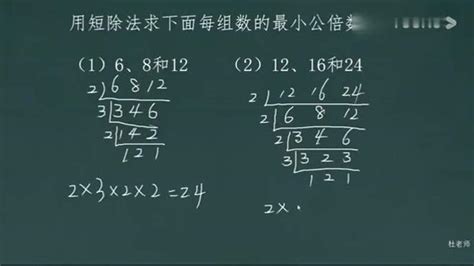 用短除法求下面每组数的最小公倍数
(1)6、8和12
2 6 8 12
3 3 4 6
2 1 4 2
1 2 1
2×3×2×2=24
(2)12、16和24
2 12 16 24
2 6 8 12
2 3 4 6
3 3 2 3
1 2 1
2×.
杜老师